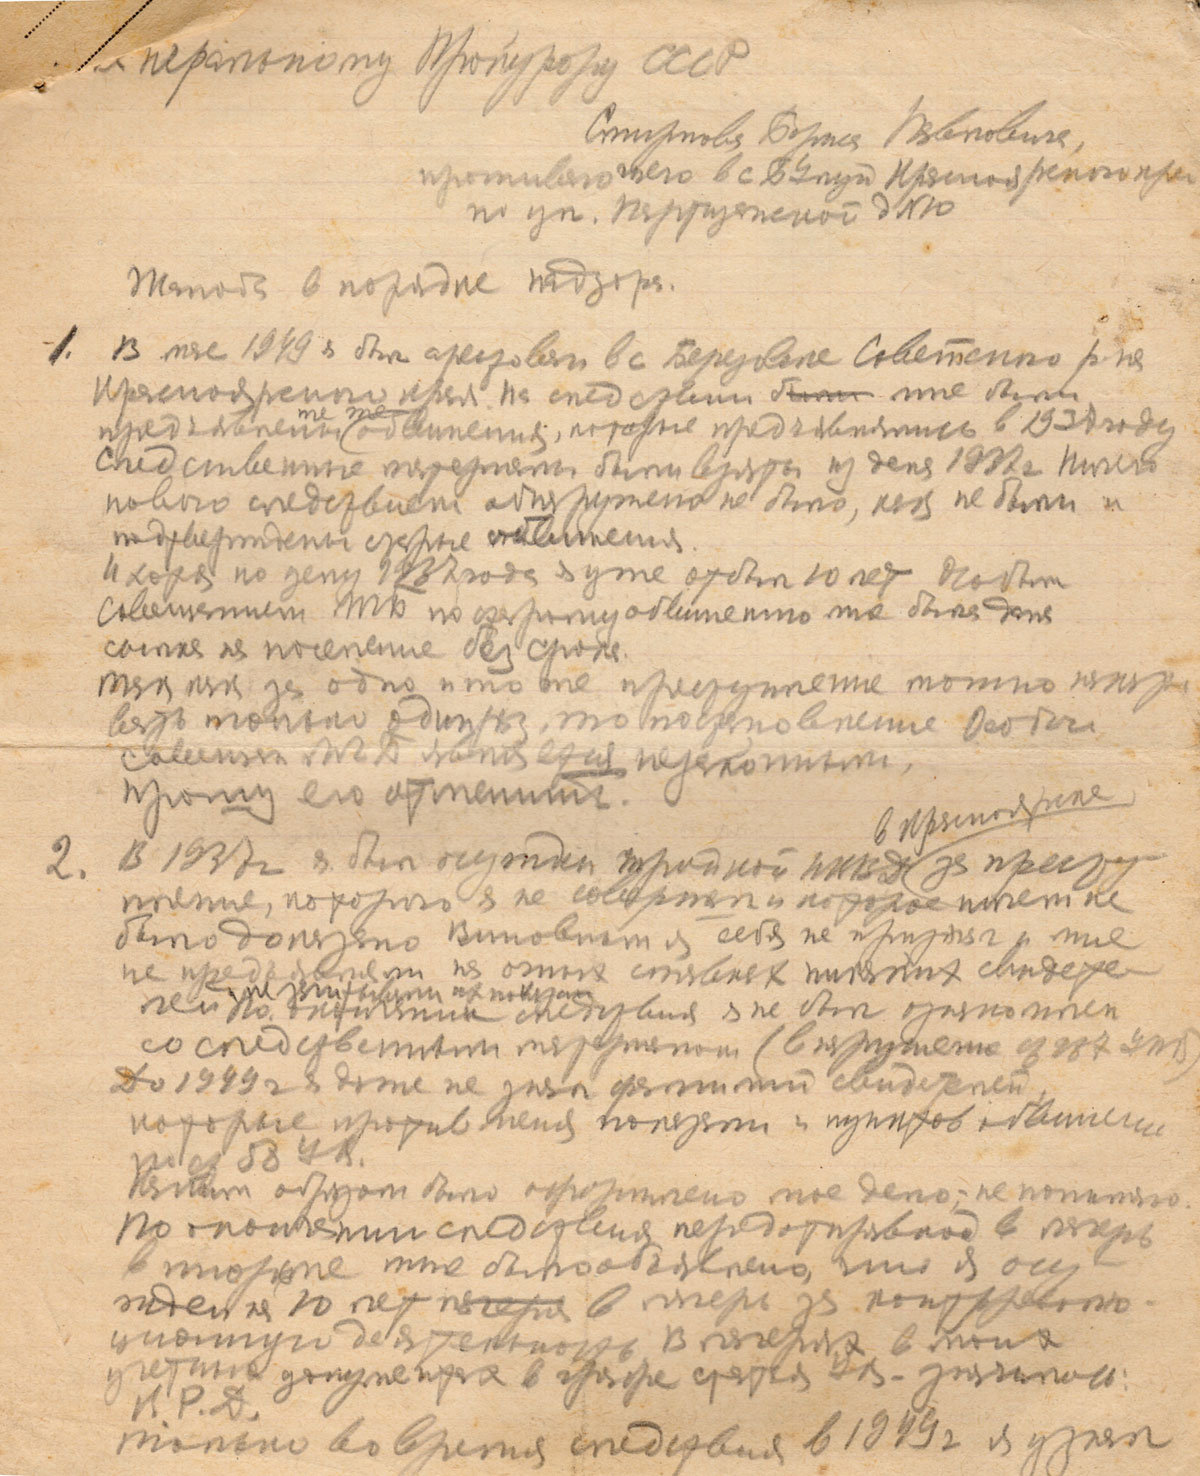 Генеральному Прокурору СССР
Смирнова Бориса Павловича,
проживающего в с Красноярского края
по ул. Партизанской д №10
Жалоба в порядке надзора.
1. В мае 1949 я был арестован в с Березовке Советского р-на
Красноярского края. На следствии были мне были
предъявлены те же обвинения, которые предъявлялись в 1937 году
Следственные материалы были взяты из дела 1937 г Ничего
нового следствием обнаружено не было, как не были и
подтверждены старые обвинения.
И хотя по делу 1937 года я уже отбыл 10 лет Особым
Совещанием МГБ по старому обвинению мне была дана
ссылка на поселение без срока.
Так как за одно и то же преступление можно наказы
вать только один раз, то постановление Особого
Совещания МГБ является незаконным,
прошу его отменить.
2. В 1937 г я был осужден тройкой НКВД в Красноярске за престу
пление, которого я не совершал и которое ничем не
было доказано Виновным я себя не признал и мне
не предъявляли на очных ставках никаких свидете
лей, не зачитывали их показания По окончании следствия я не был ознакомлен
со следственным материалом (в нарушение ст УПК)
До 1949 г я даже не знал фамилий свидетелей,
которые против меня показали и пунктов обвинения
по ст 58 УК.
Каким образом было оформлено мое дело, - не понимаю.
По окончании следствия перед отправкой в лагерь
в тюрьме мне было объявлено, что я осу
жден на 10 лет лагеря в лагерь за контрреволю-
ционную деятельность В лагерях в моих
учетных документах в графе статья УК - значилось:
К.Р.Д.
Только во время следствия в 1949 г я узнал